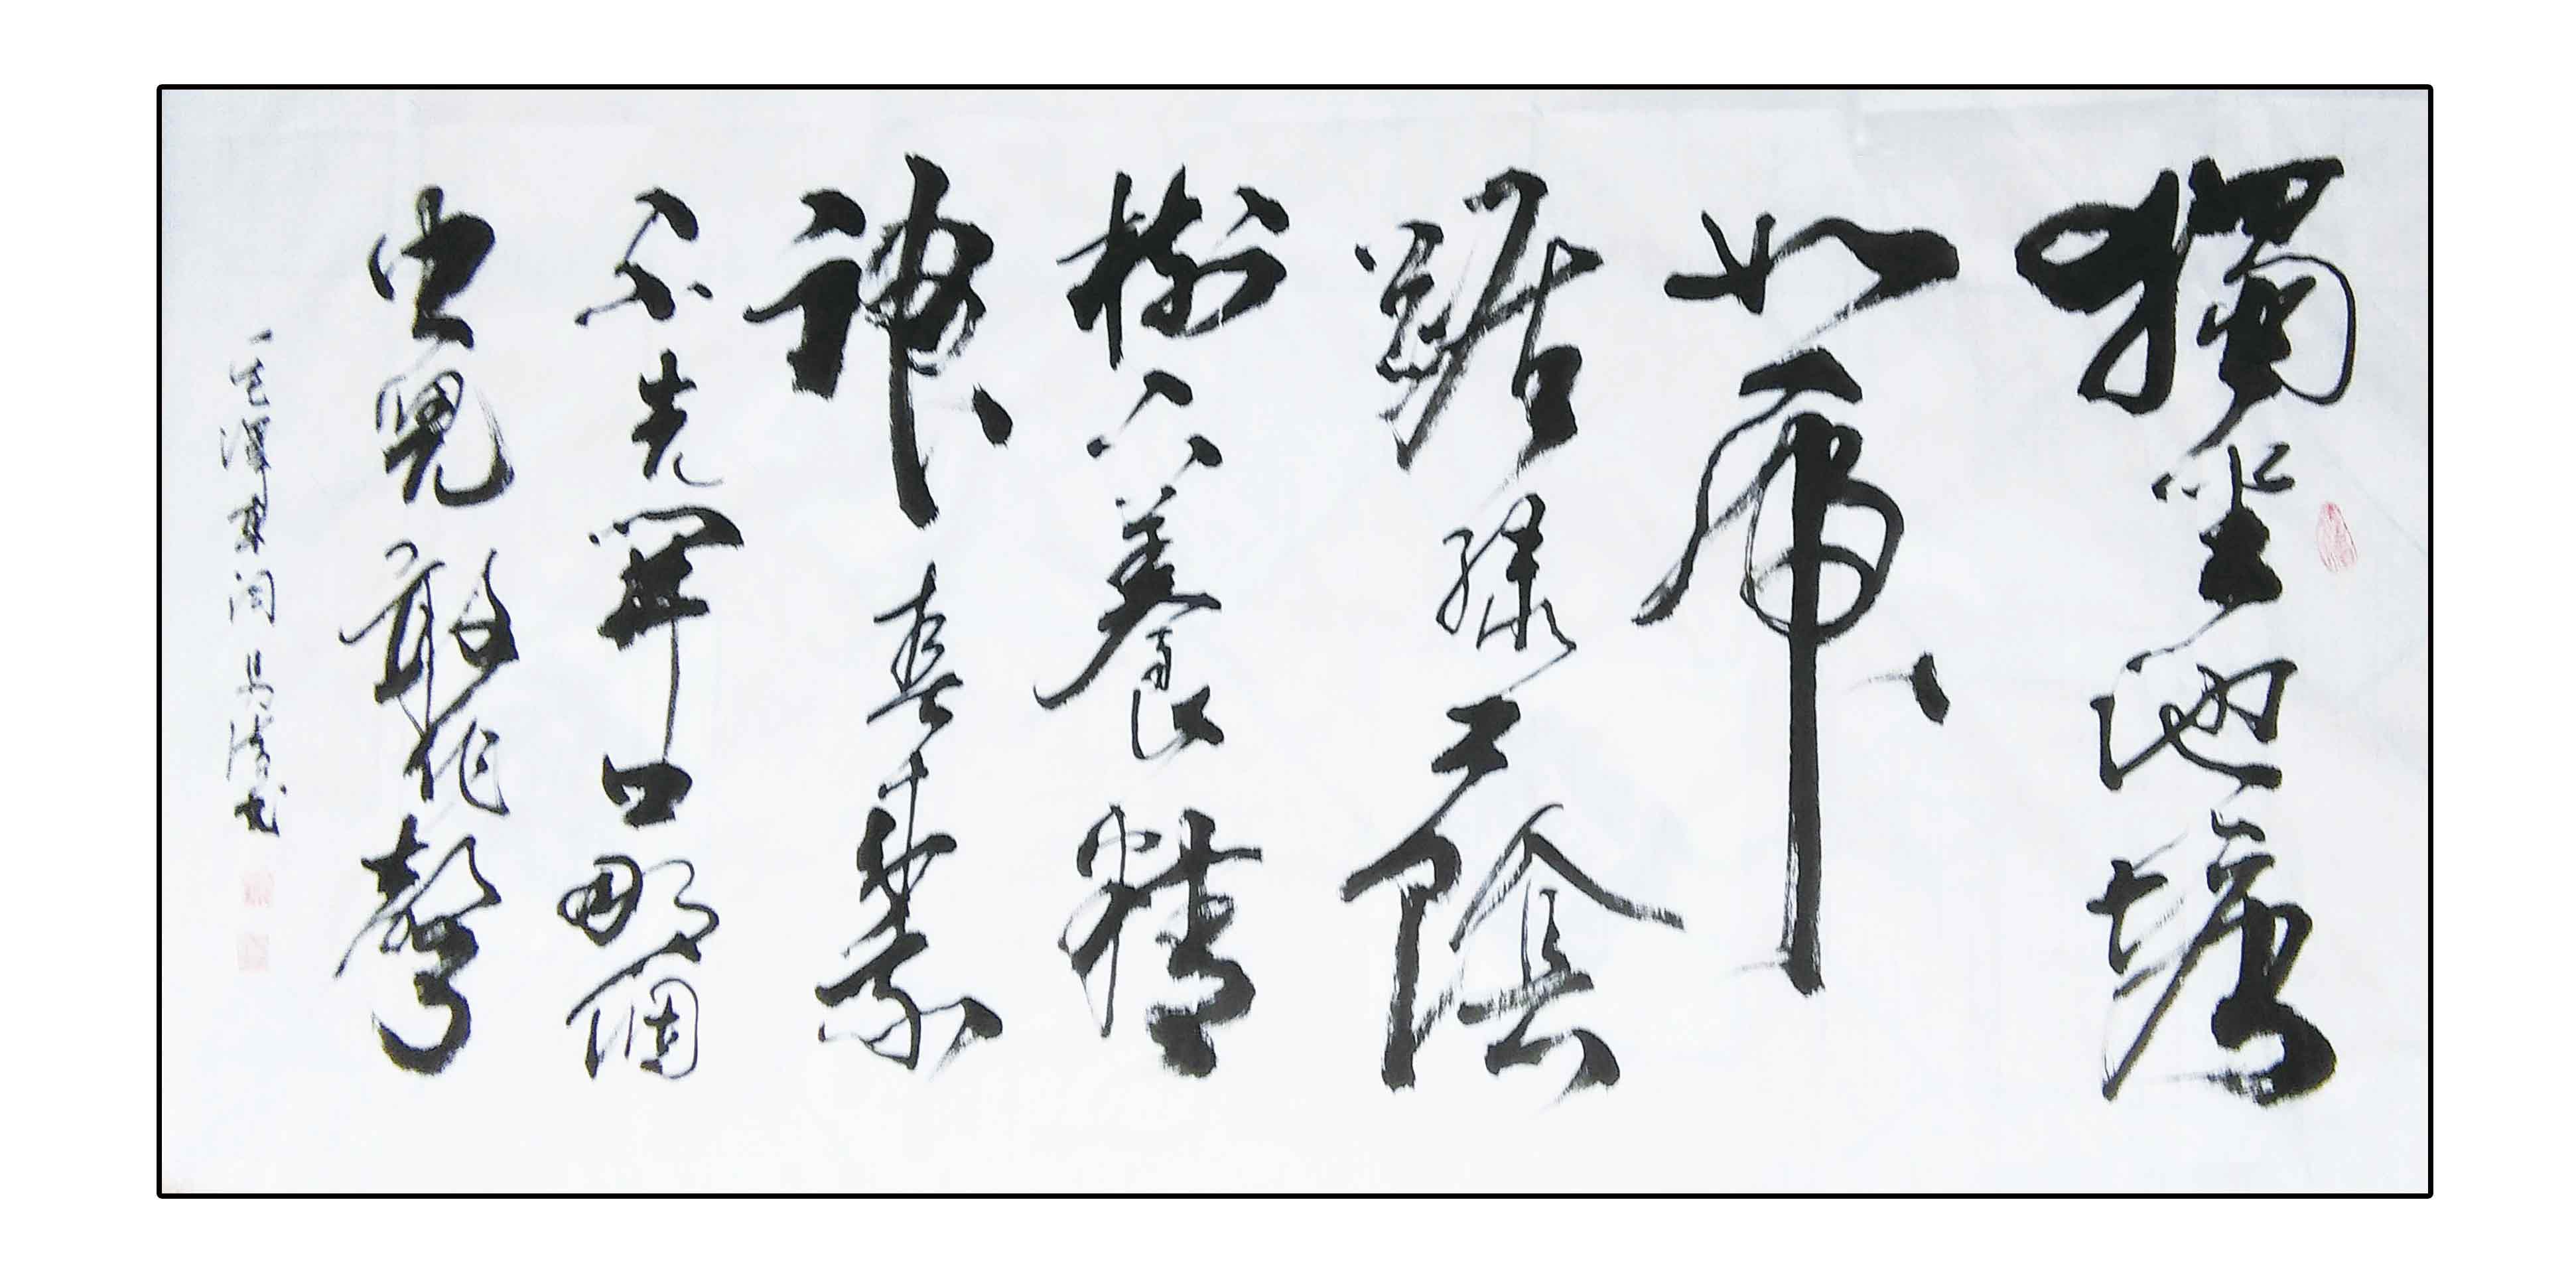 獨坐池塘
如虎
踞綠蔭
樹下養精
神春來我
不先開口那個
虫兒敢作聲
毛澤東詞 书